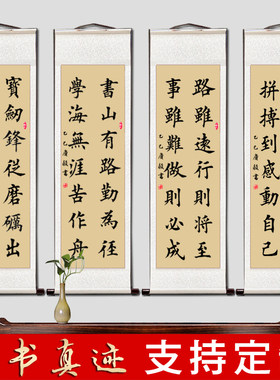 寶劍鋒從磨礪出
書山有路勤為徑
學海無涯苦作舟
路雖遠行則將至
事雖難做則必成
拼搏到感動自己
书真迹 支持定